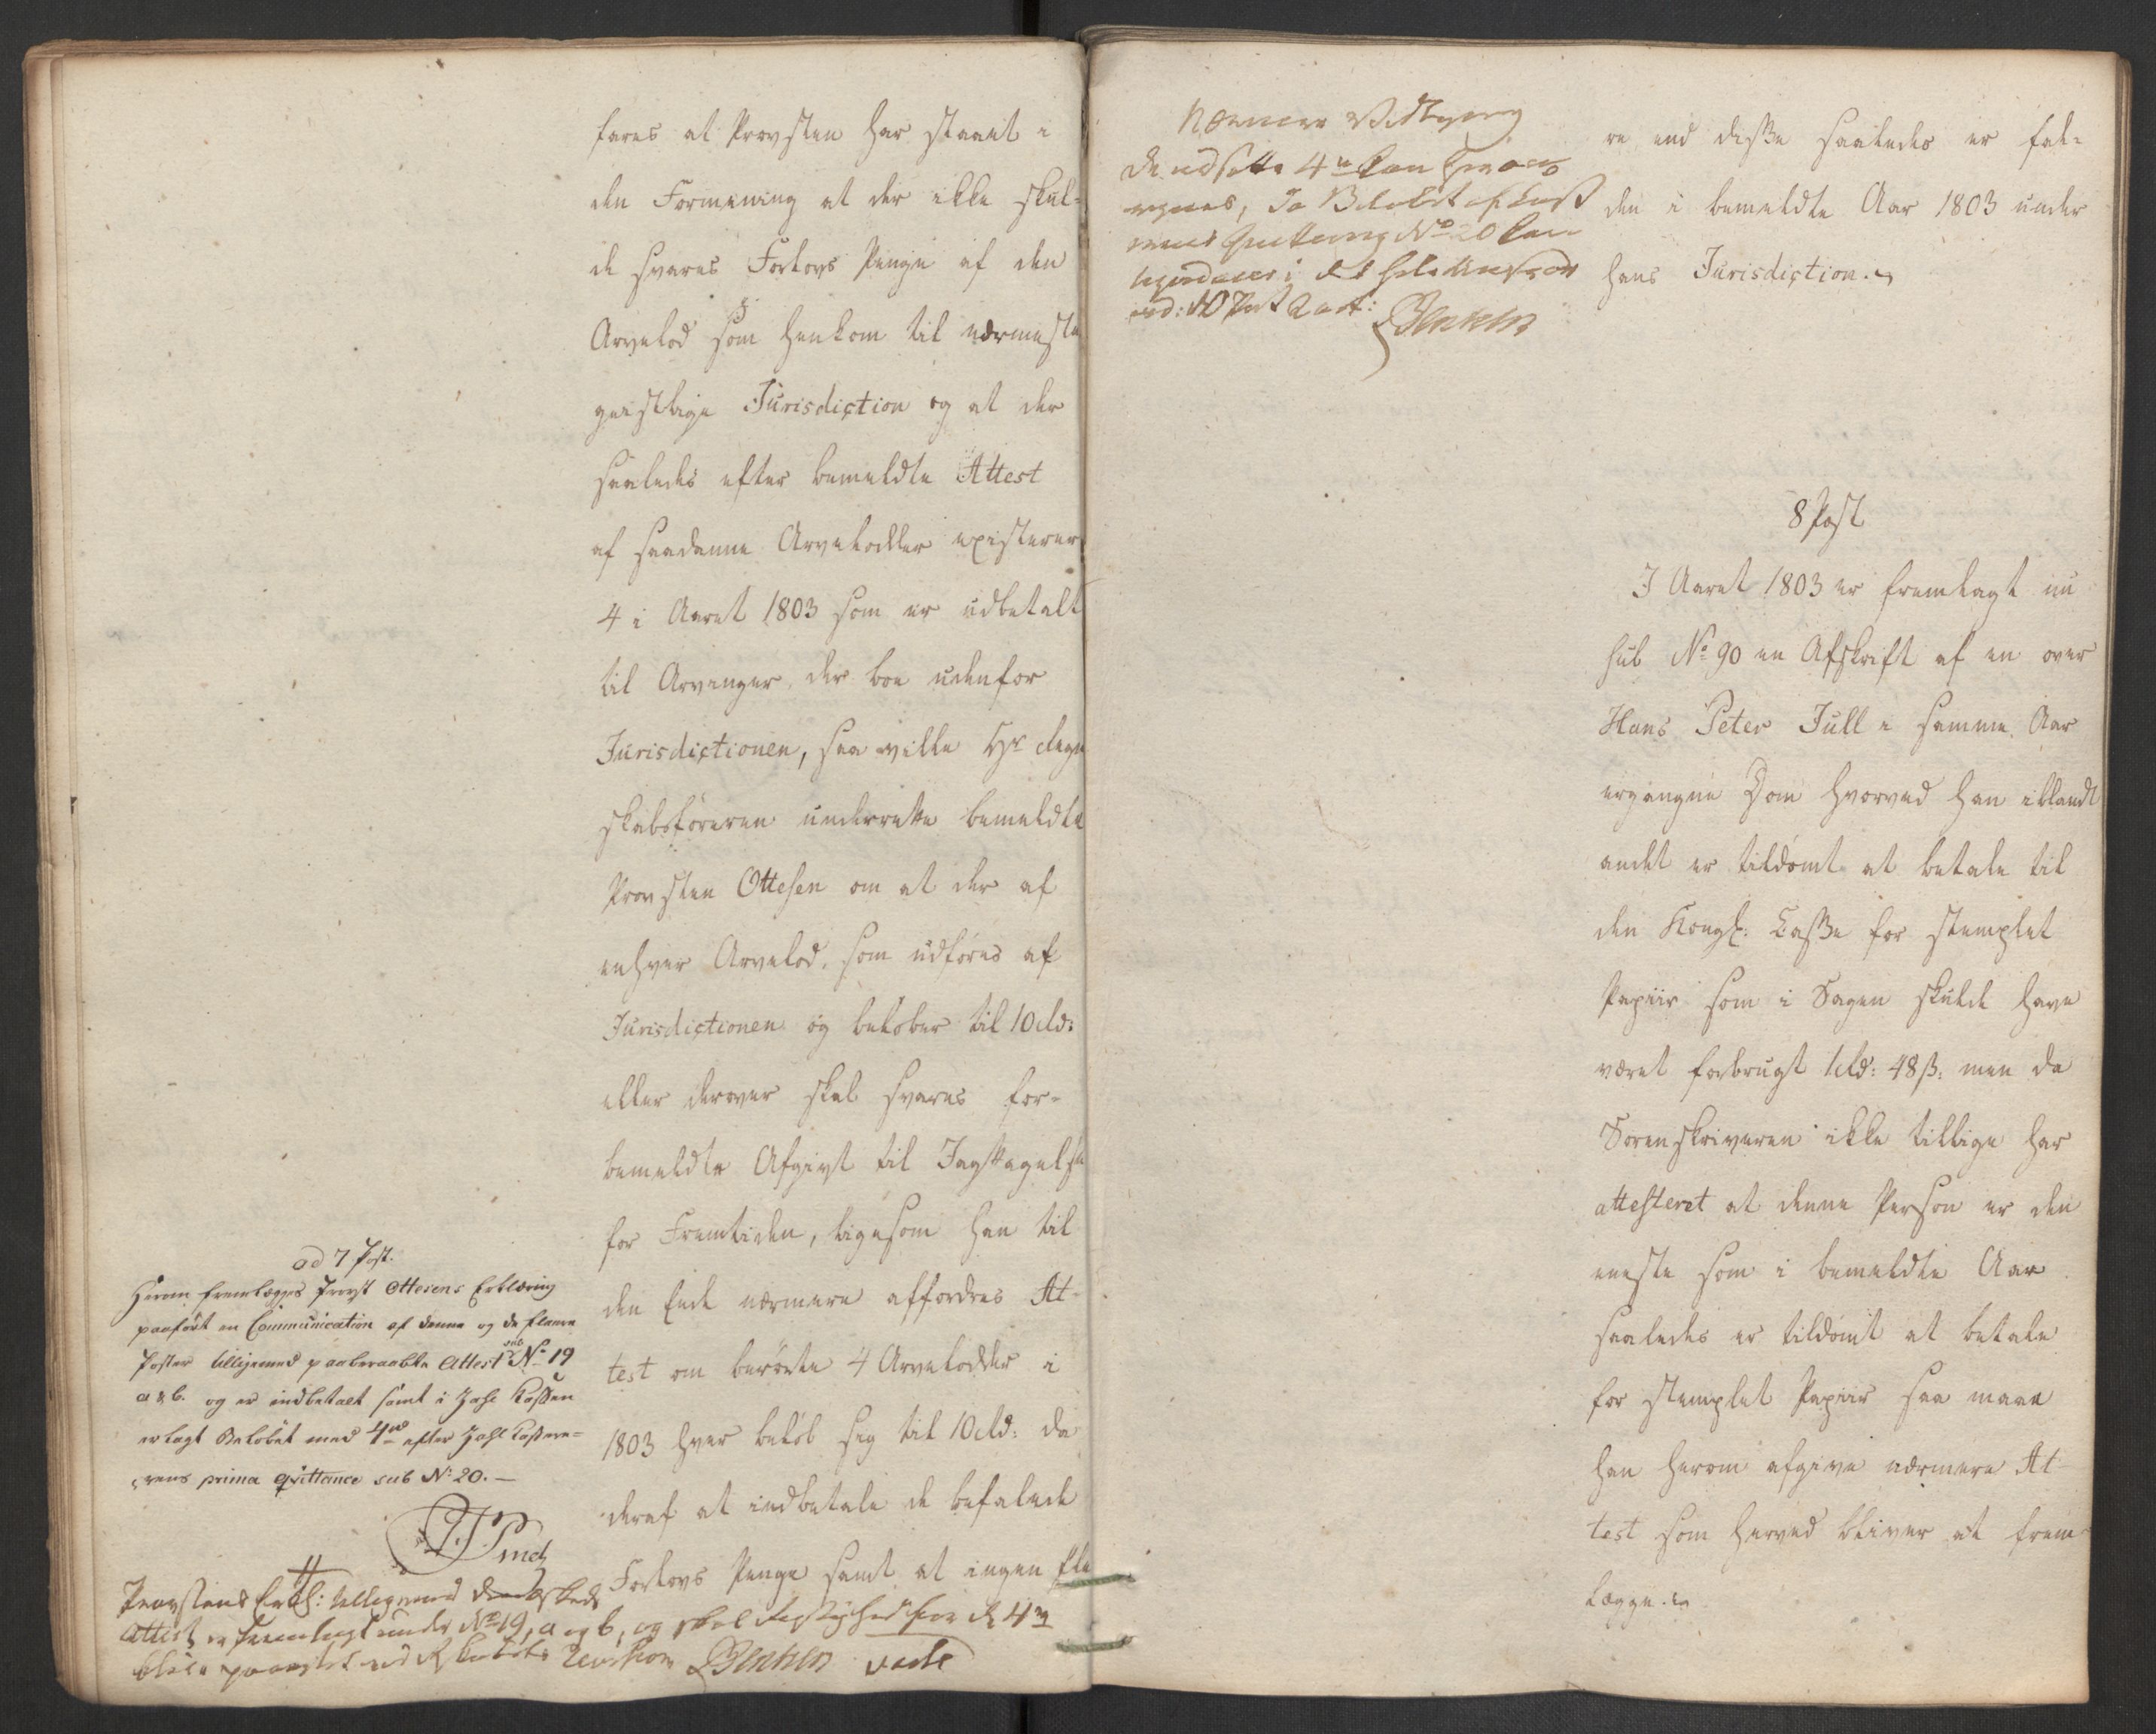 fares at Provsten har staaet i
den Formening at der ikke skul-
de svares Forlovs Penge af den
Arvelod som henkom til nærmeste
geistlige Jurisdiction og at der
saaledes efter bemeldte Attest
af saadanne Arvelodder existerer
4 i Aaret 1803 som er udbetalt
til Arvinger der boe udenfor
Jurisdictionen, saa ville Hr Regn
skabsføreren underrette bemeldte
Provsten Ottesen om at der af
enhver Arvelod, som udføres af
Jurisdictionen og beløber til 10 Rd:
eller derover skal svares for-
bemeldte Afgivt til Iagttagelse
for Fremtiden, ligesom han til
den Ende nærmere affordres At-
test om berørte 4 Arvelodder i
1803 hver beløb sig til 10 Rd: da
deraf at indbetale de befalede
Forlovs Penge samt at ingen fle
ad 7 Post.
Herom fremlægges Provst Ottesens Erklæring
paaført en Communication af denne og de fleere
Poster tilligemed paaberaabte Attest sub No 19
a & b. og er indbetalt samt i Zahl Cassen
erlagt Beløbet med 4 rd efter Zahl Cassere-
rens prima Qvittance sub No 20. —
Provstens Erkl: tilligemed
Attest er fremlagt under No 19, a og b, og skal
blive paaseet ved Revision Bentsen
vede
Nærmere
de udsatte 4
No 20 kan
Bentsen
re end disse saaledes er fal-
den i bemeldte Aar 1803 under
hans Jurisdiction.
8 Post
I Aaret 1803 er fremlagt nu
sub No 90 en Afskrift af en over
Hans Peter Jull i samme Aar
ergangne Dom hvorved han iblandt
andet er tildømt at betale til
den Kongl: Casse for stemplet
Papiir som i Sagen skulde have
været forbrugt 1 Rd: 48 ß: men da
Sorenskriveren ikke tillige har
attesteret at denne Person er den
eneste som i bemeldte Aar
saaledes er tildømt at betale
for stemplet Papiir saa maae
han herom afgive nærmere At-
test som herved bliver at frem-
lægge.